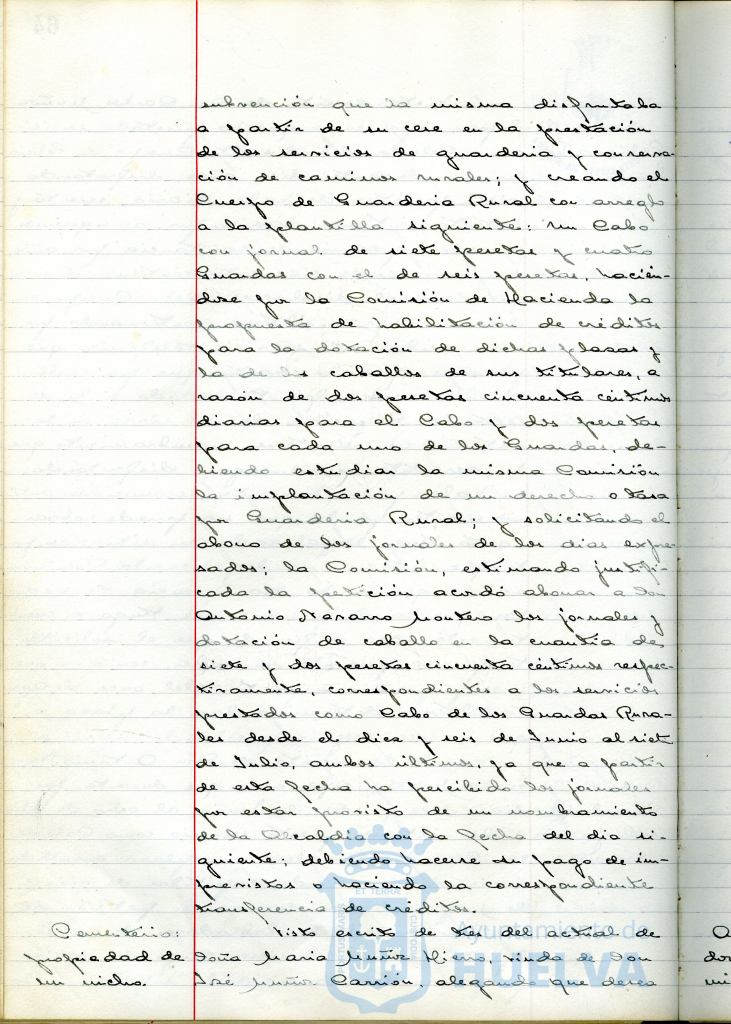 subvención que la misma disfrutaba
a partir de su cese en la prestación
de los servicios de guarderia y conserva-
ción de caminos rurales; y creando el
Cuerpo de Guarderia Rural con arreglo
a la plantilla siguiente: un Cabo
con jornal de siete pesetas y cuatro
Guardas con el de seis pesetas, hacién-
dose por la Comisión de Hacienda la
propuesta de habilitación de créditos
para la dotación de dichas plazas y
la de los caballos de sus titulares, a
razón de dos pesetas cincuenta céntimos
diarias para el Cabo y dos pesetas
para cada uno de los Guardas, de-
biendo estudiar la misma Comisión
la implantación de un derecho o tasa
por Guarderia Rural; y solicitando el
abono de los jornales de los dias expre-
sados; la Comisión, estimando justifi-
cada la petición acordó abonar a don
Antonio Navarro Montero los jornales y
dotación de caballo en la cuantia de
siete y dos pesetas cincuenta céntimos respec-
tivamente, correspondientes a los servicios
prestados como Cabo de los Guardas Rura-
les desde el diez y seis de Junio al siete
de Julio, ambos ultimos, ya que a partir
de esta fecha ha percibido los jornales
por estar provisto de un nombramiento
de la Alcaldia con la fecha del dia si-
guiente; debiendo hacerse su pago de im-
previstos o haciendo la correspondiente
transferencia de créditos.
Cementerio:
propiedad de
un nicho.
Visto escrito de tres del actual de
doña Maria Muñoz Hierro, viuda de don
José Muñoz Carrion, alegando que desea
Ayuntamiento de
HUELVA